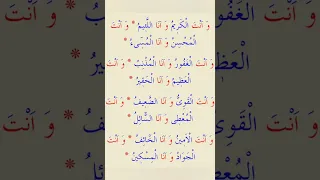 وَ اَنْتَ الْكَرِيمُ وَ اَنَا اللَّئِيمُ * وَ اَنْتَ
الْمُحْسِنُ وَ اَنَا الْمُسِىءُ *
وَ اَنْتَ الْغَفُورُ وَ اَنَا الْمُذْنِبُ * وَ اَنْتَ
الْعَظِيمُ وَ اَنَا الْحَقِيرُ *
وَ اَنْتَ الْقَوِىُّ وَ اَنَا الضَّعِيفُ * وَ اَنْتَ
الْمُعْطِى وَ اَنَا السَّائِلُ *
وَ اَنْتَ الْاَمِينُ وَ اَنَا الْخَائِفُ * وَ اَنْتَ
الْجَوَادُ وَ اَنَا الْمِسْكِينُ *